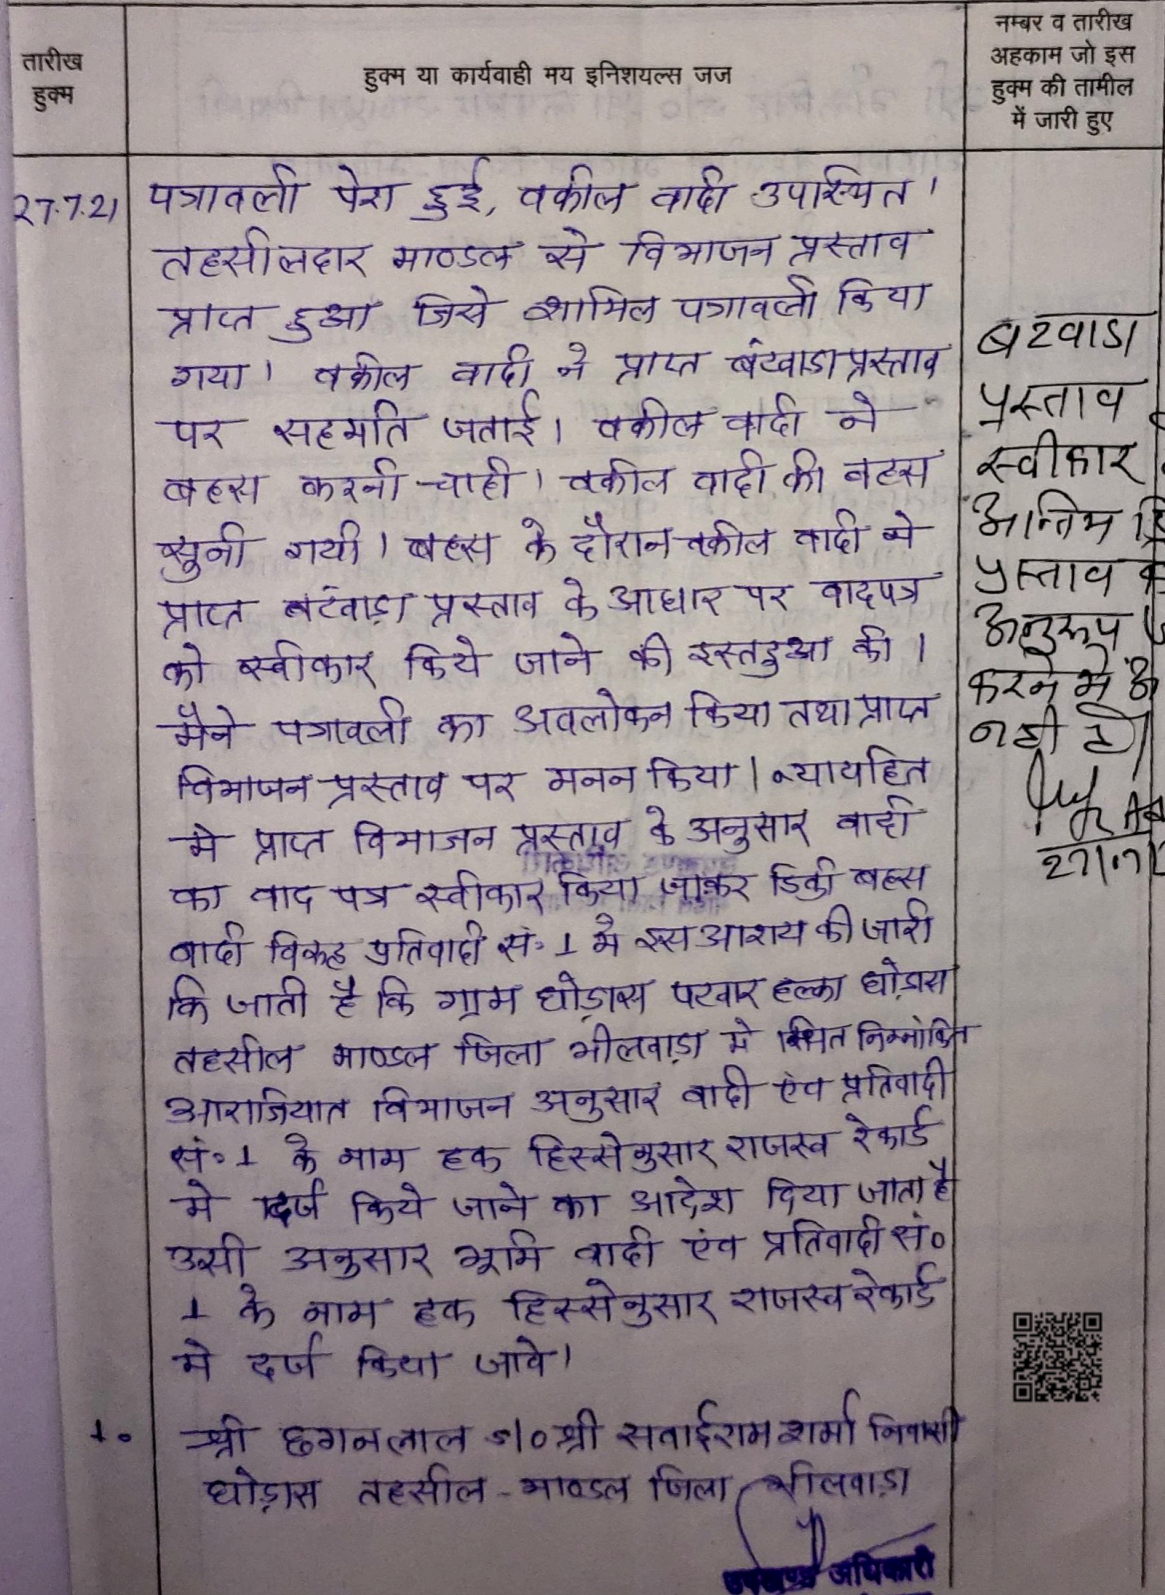 तारीख
हुक्म
हुक्म या कार्यवाही मय इनिशयल्स जज
नम्बर व तारीख
अहकाम जो इस
हुक्म की तामील
में जारी हुए
27.7.21
पत्रावली पेश हुई, वकील वादी उपस्थित।
तहसीलदार माण्डल से विभाजन प्रस्ताव
प्राप्त हुआ जिसे शामिल पत्रावली किया
गया। वकील वादी ने प्राप्त बंटवाडा प्रस्ताव
पर सहमति जताई। वकील वादी ने
बहस करनी चाही। वकील वादी की बहस
सुनी गयी। बहस के दौरान वकील वादी ने
प्राप्त बटंवाड़ा प्रस्ताव के आधार पर वादपत्र
को स्वीकार किये जाने की इस्तदुआ की।
मैने पत्रावली का अवलोकन किया तथा प्राप्त
विभाजन प्रस्ताव पर मनन किया। न्यायहित
मे प्राप्त विभाजन प्रस्ताव के अनुसार वादी
का वाद पत्र स्वीकार किया जाकर डिक्री बहस
वादी विरूद्ध प्रतिवादी सं॰ 1 मे इस आशय की जारी
कि जाती है कि ग्राम घोड़ास पटवार हल्का घोड़ास
तहसील माण्डल जिला भीलवाड़ा मे स्थित निम्नांकित
आराजियात विभाजन अनुसार वादी एंव प्रतिवादी
सं॰ 1 के नाम हक हिस्सेनुसार राजस्व रेकार्ड
मे दर्ज किये जाने का आदेश दिया जाता है
उसी अनुसार भूमि वादी एंव प्रतिवादी सं०
1 के नाम हक हिस्सेनुसार राजस्व रेकार्ड
मे दर्ज किया जावे।
1.
श्री छगनलाल s/o श्री सवाईराम शर्मा निवासी
घोड़ास तहसील - माण्डल जिला भीलवाड़ा
उपखण्ड अधिकारी
बटवाडा
प्रस्ताव
स्वीकार
अन्तिम
प्रस्ताव
अनुरूप
करने मे
नही है
27/07/